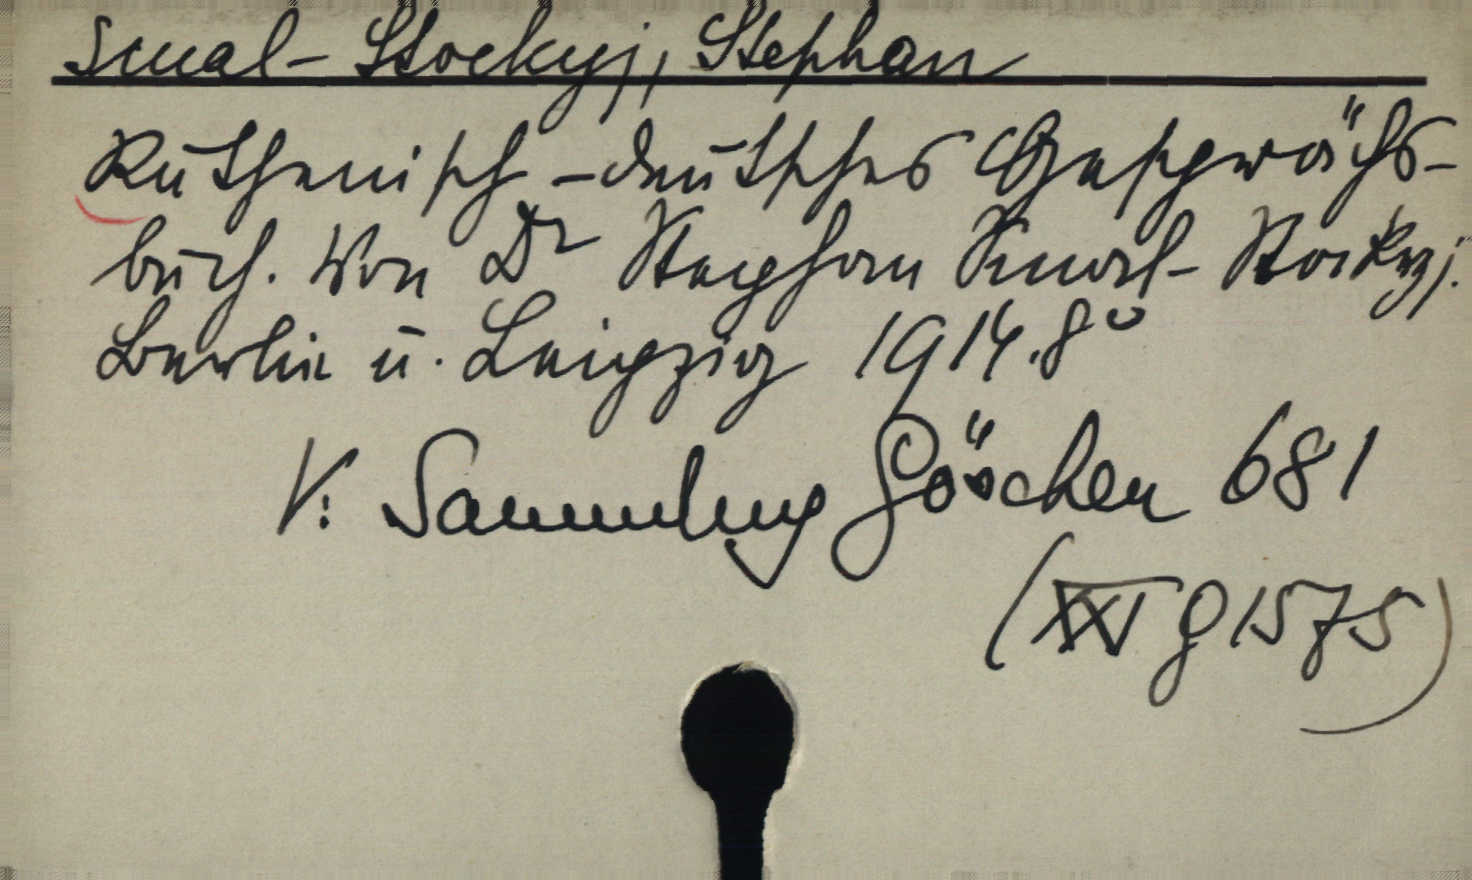 Smal-Stockyj, Stephan
Ruthenisch-deutsches Gesprächs-
buch. Von Dr Stephan Smal-Stockyj.
Berlin u. Leipzig 1914. 8°
V. Sammlung Göschen 681
(XXI g 1575)